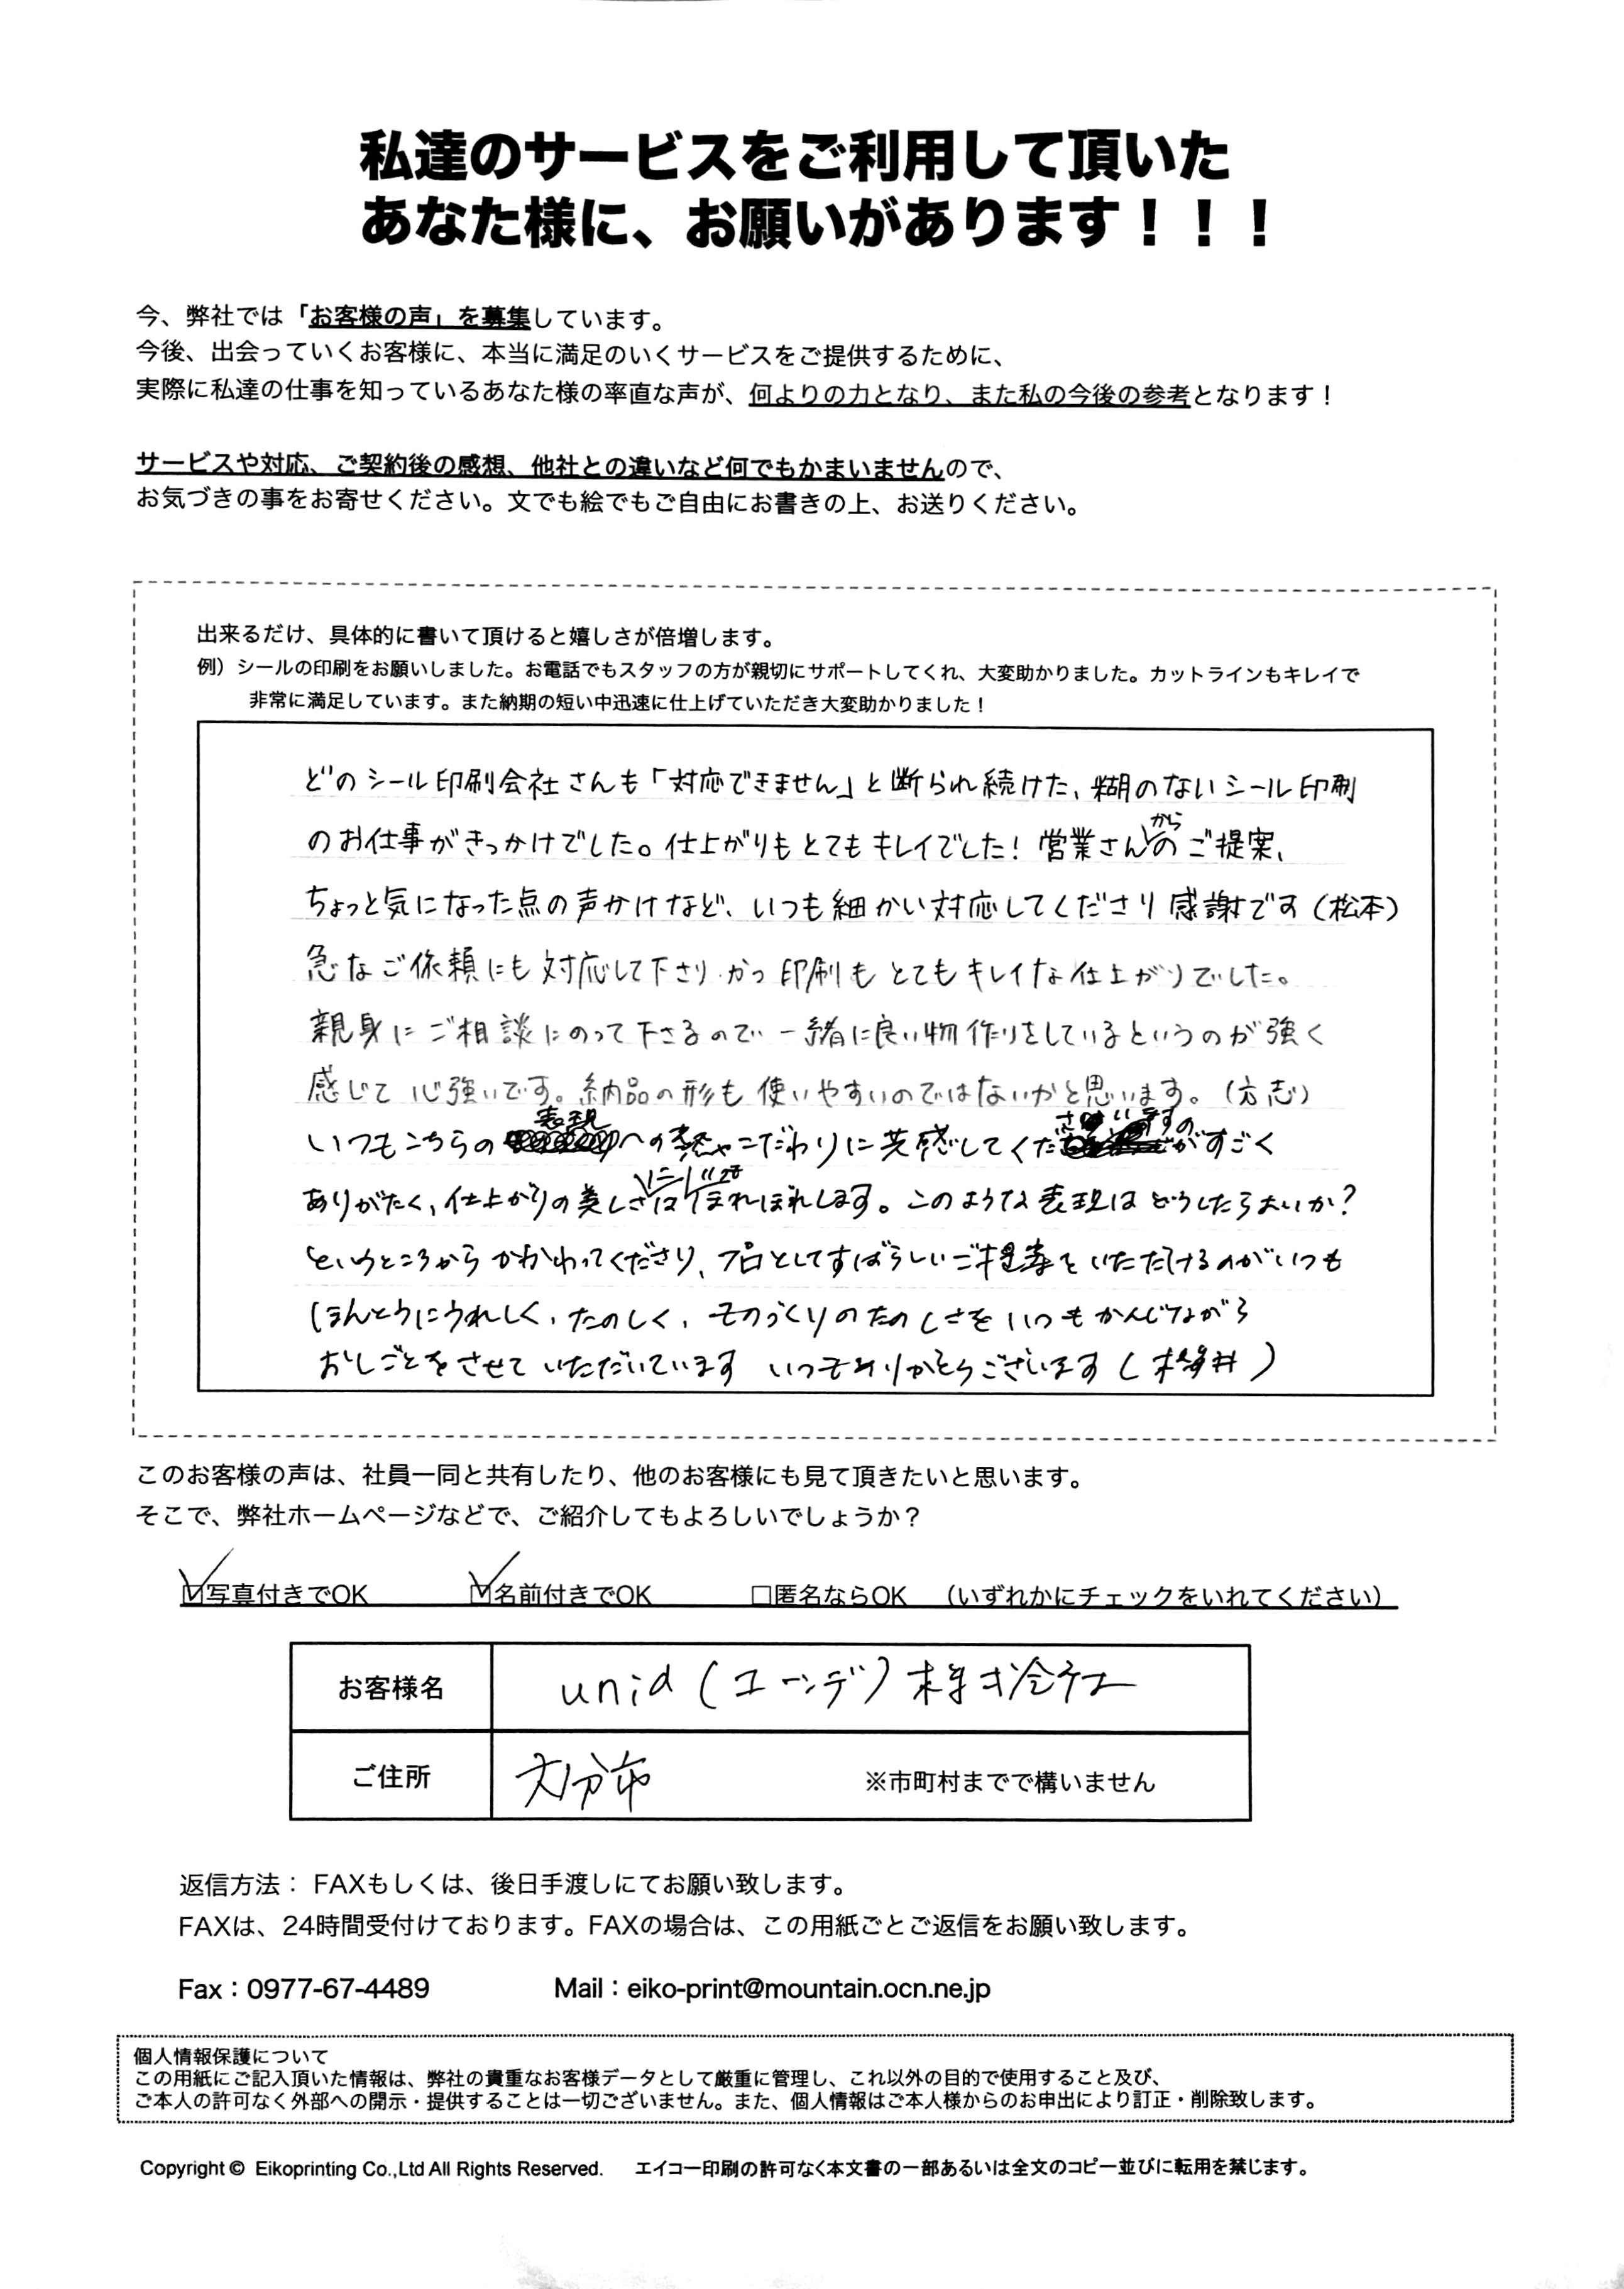 私達のサービスをご利用して頂いた
あなた様に、お願いがあります！！！
今、弊社では「お客様の声」を募集しています。
今後、出会っていくお客様に、本当に満足のいくサービスをご提供するために、
実際に私達の仕事を知っているあなた様の率直な声が、何よりの力となり、また私の今後の参考となります！
サービスや対応、ご契約後の感想、他社との違いなど何でもかまいませんので、
お気づきの事をお寄せください。文でも絵でもご自由にお書きの上、お送りください。
出来るだけ、具体的に書いて頂けると嬉しさが倍増します。
例）シールの印刷をお願いしました。お電話でもスタッフの方が親切にサポートしてくれ、大変助かりました。カットラインもキレイで
非常に満足しています。また納期の短い中迅速に仕上げていただき大変助かりました！
どのシール印刷会社さんも「対応できません」と断られ続けた、糊のないシール印刷
のお仕事がきっかけでした。仕上がりもとてもキレイでした！営業さんからのご提案、
ちょっと気になった点の声かけなど、いつも細かい対応してくださり感謝です（松本）
急なご依頼にも対応して下さり、かつ印刷もとてもキレイな仕上がりでした。
親身にご相談にのって下さるので一緒に良い物作りをしているというのが強く
感じて心強いです。納品の形も使いやすいのではないかと思います。（方志）
いつもこちらの表現への熱やこだわりに共感してくださいますのがすごく
ありがたく、仕上がりの美しさにはいつもほれぼれします。このような表現はどうしたらよいか？
というところからかかわってくださり、プロとしてすばらしいご提案をいただけるのがいつも
ほんとうにうれしく、たのしく、ものづくりのたのしさをいつもかんじながら
おしごとをさせていただいています いつもありがとうございます（ 井）
このお客様の声は、社員一同と共有したり、他のお客様にも見て頂きたいと思います。
そこで、弊社ホームページなどで、ご紹介してもよろしいでしょうか？
☑写真付きでOK ☑名前付きでOK □匿名ならOK （いずれかにチェックをいれてください）
お客様名 unid（ユーンデ）株式会社
ご住所 大分市 ※市町村までで構いません
返信方法： FAXもしくは、後日手渡しにてお願い致します。
FAXは、24時間受付けております。FAXの場合は、この用紙ごとご返信をお願い致します。
Fax：0977-67-4489 Mail：eiko-print@mountain.ocn.ne.jp
個人情報保護について
この用紙にご記入頂いた情報は、弊社の貴重なお客様データとして厳重に管理し、これ以外の目的で使用すること及び、
ご本人の許可なく外部への開示・提供することは一切ございません。また、個人情報はご本人様からのお申出により訂正・削除致します。
Copyright © Eikoprinting Co.,Ltd All Rights Reserved. エイコー印刷の許可なく本文書の一部あるいは全文のコピー並びに転用を禁じます。